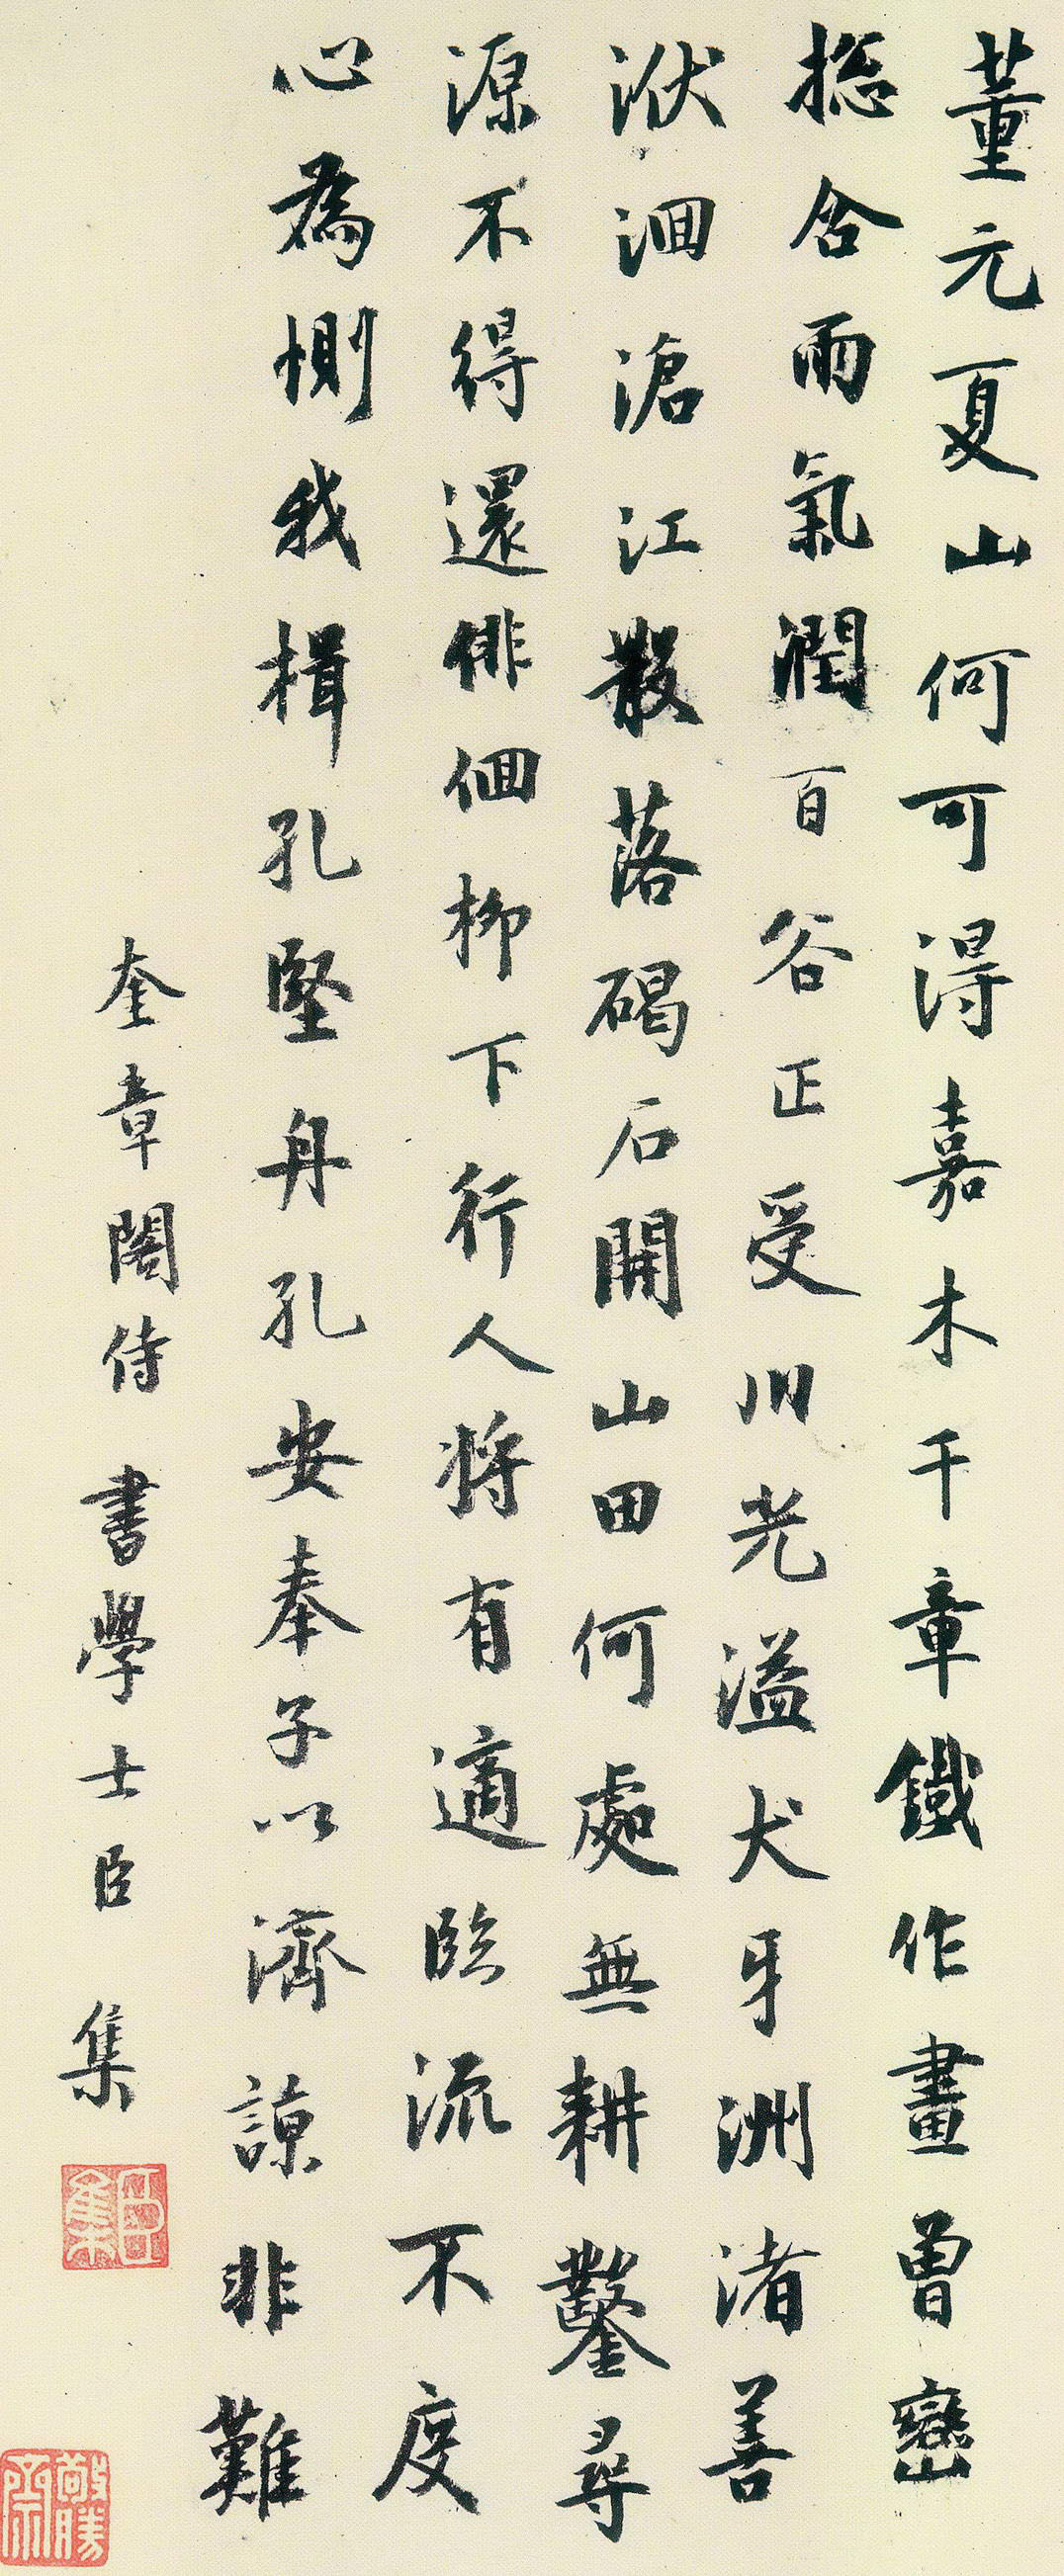 董元夏山何可得嘉木千章鐵作畫曽巒
揔含雨氣潤百谷正受川光溢犬牙洲渚善
洑洄滄江散落碣石開山田何處無耕鑿尋
源不得還俳佪柳下行人將有適臨流不度
心為惻我楫孔堅舟孔安奉子以濟諒非難
奎章閣侍書學士臣集
臣集